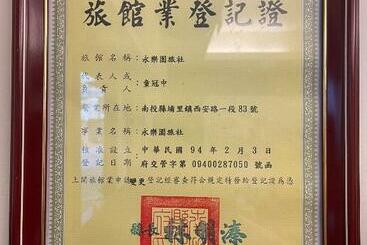 旅館業登記證
旅館名稱：永樂園旅社
代表人或
負責人：童冠中
營業所在地：南投縣埔里鎮西安路一段83號
事業名稱：永樂園旅社
核准設立
登記日期：中華民國94年2月3日
府交管字第09400287050號函
上開旅館業申請變更登記經審查符合規定特發給登記證為憑
縣長 林明溱